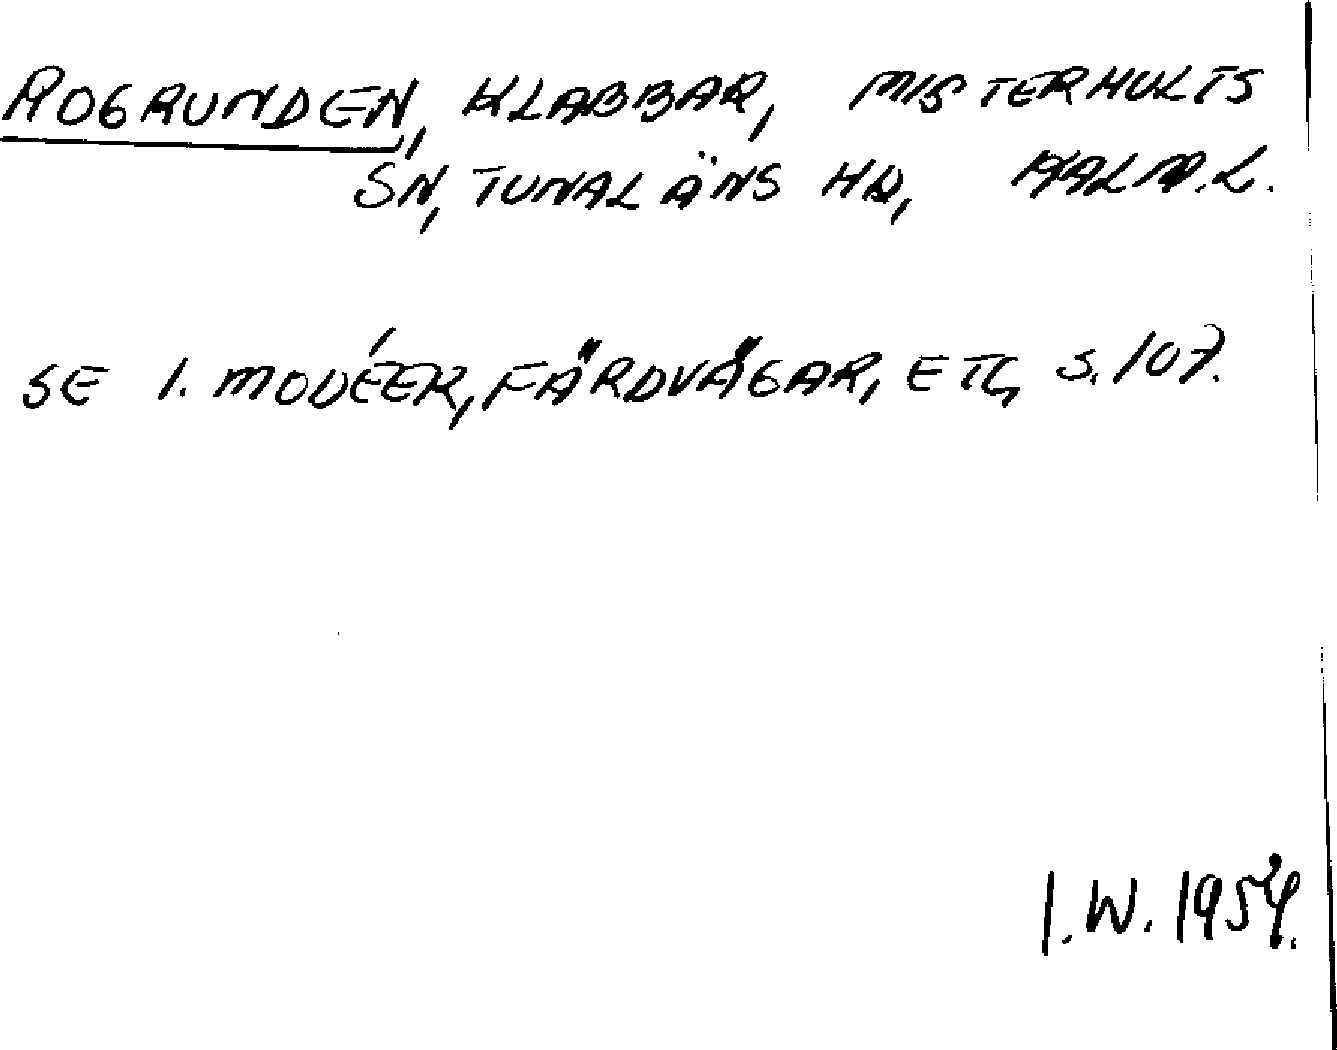 ROGRUNDEN, KLABBAR, MISTERHULTS
SN, TUNALÄNS HD, KALM.L.
SE I. MODÉER, FÄRDVÄGAR, ETC, S. 107.
I.W. 1954.